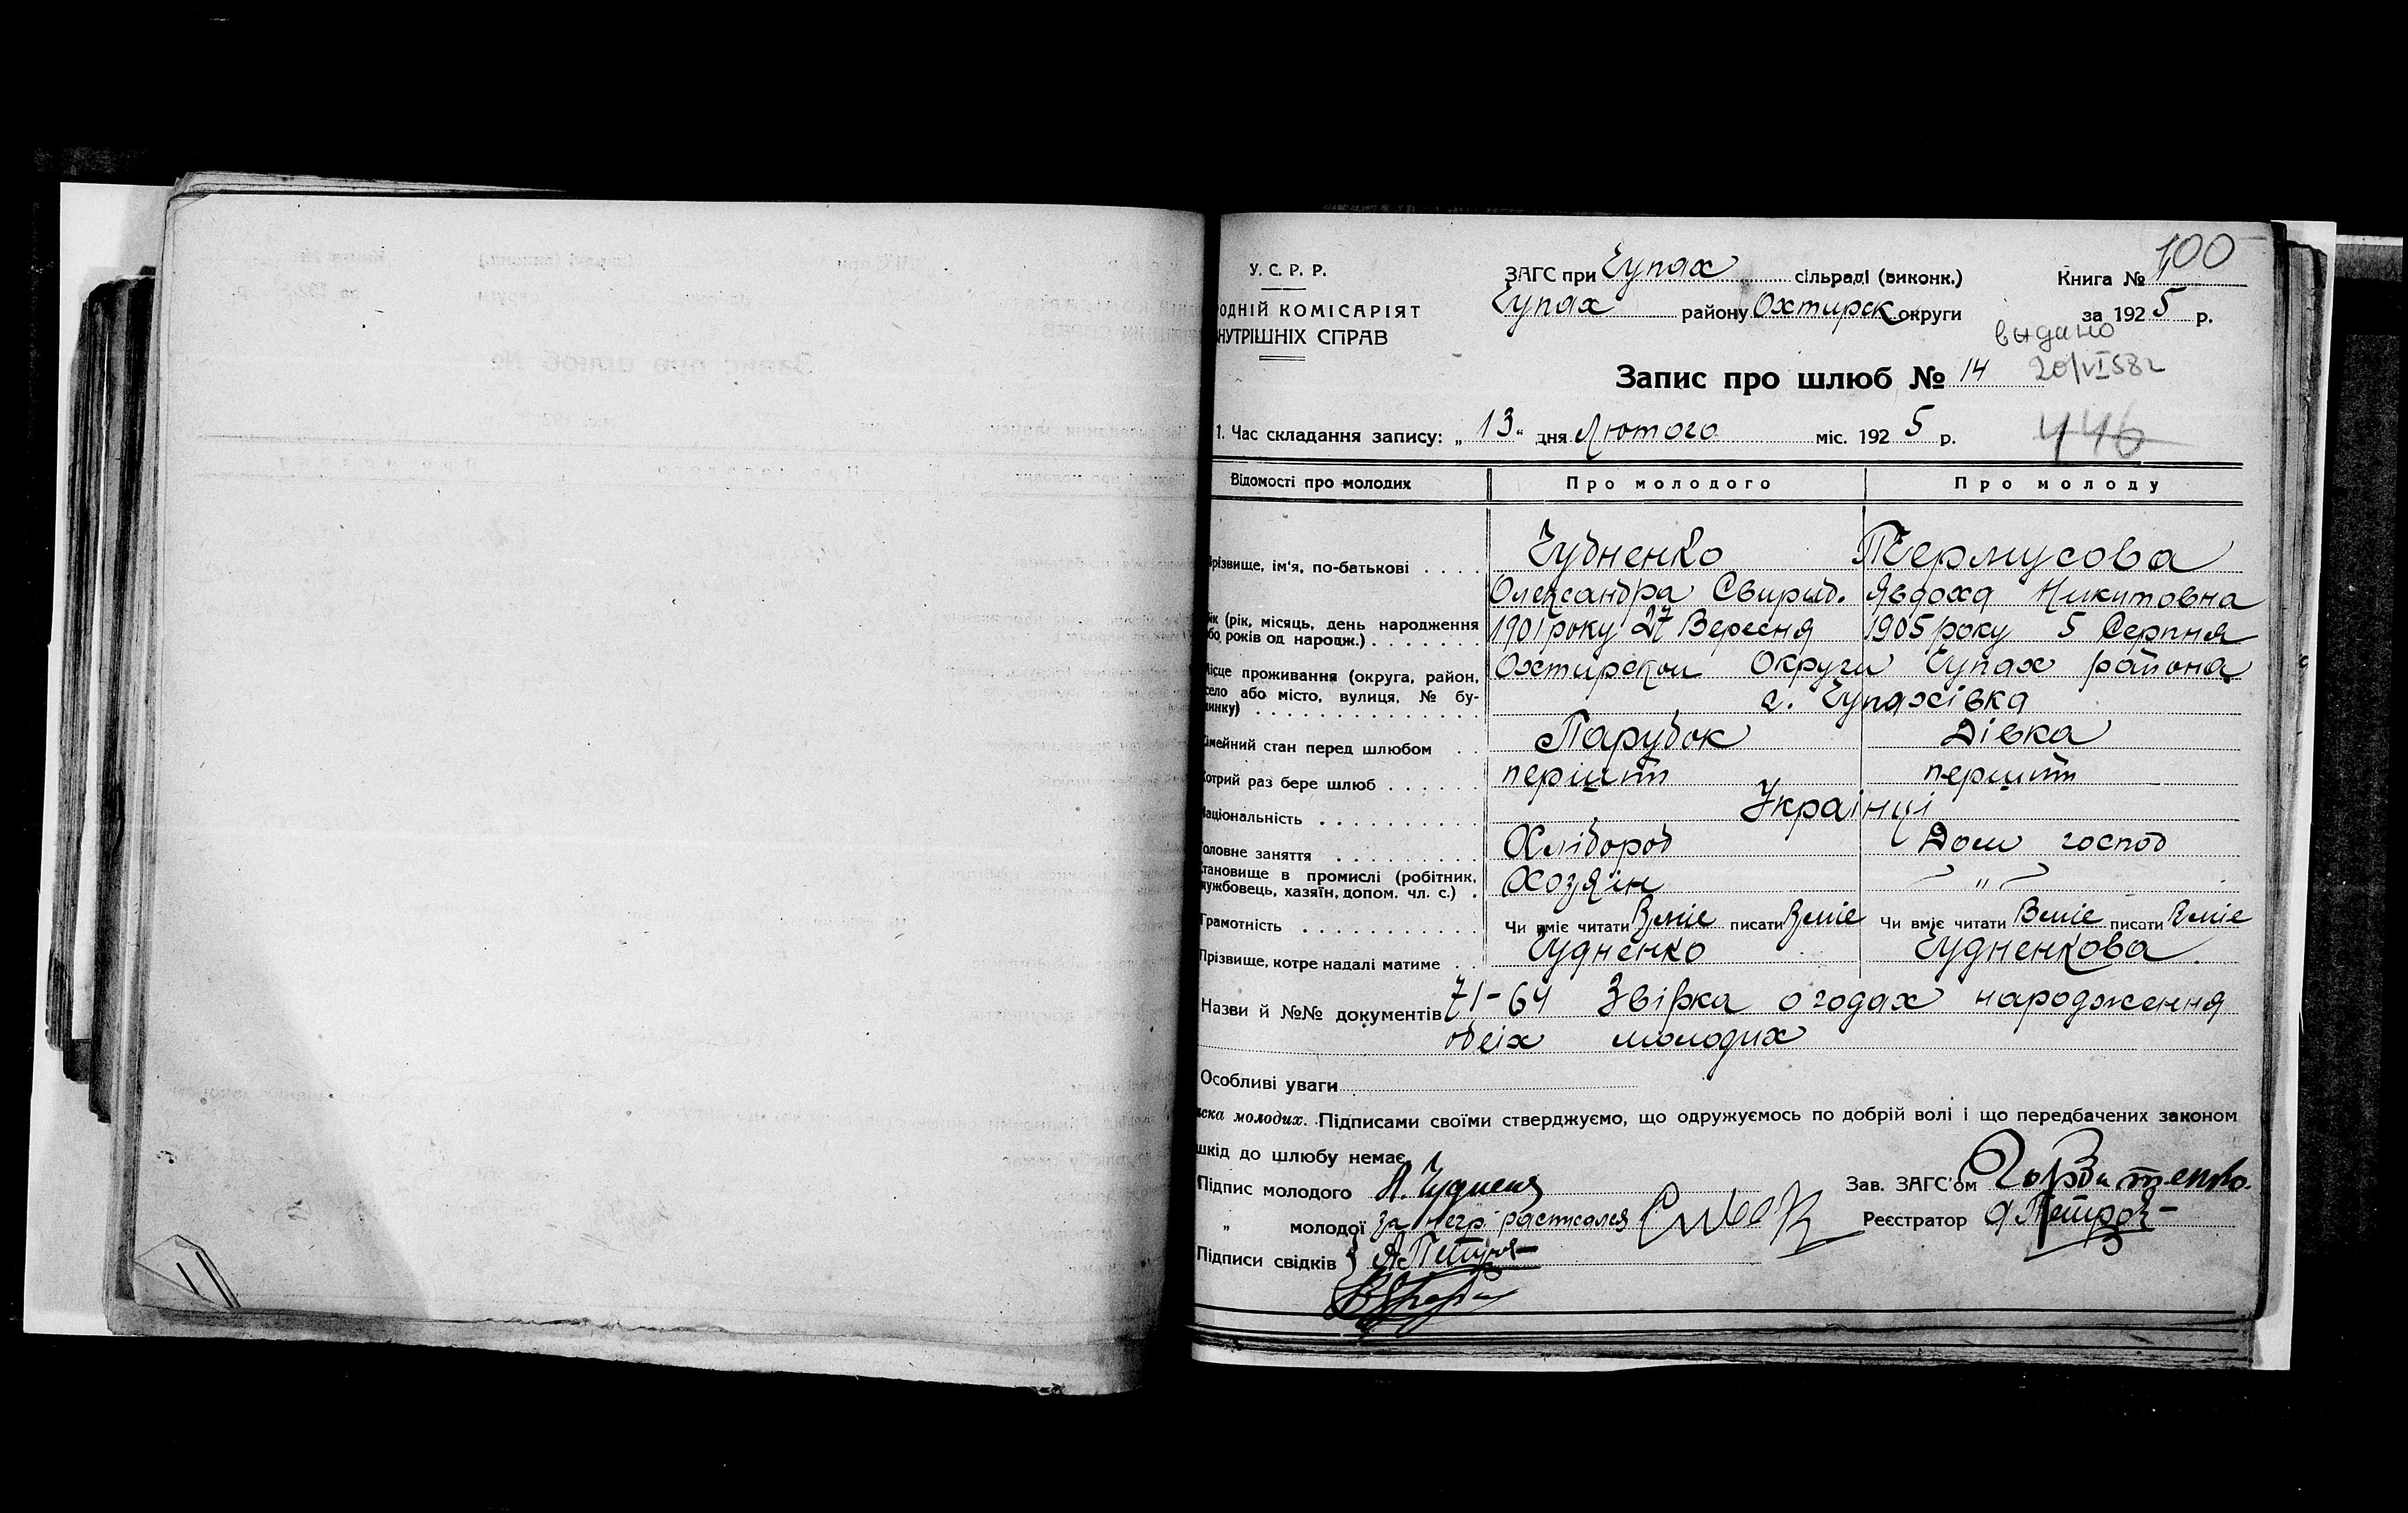 100
У. С. Р. Р.
ЗАГС при Чупах сільраді (виконк.)
Книга № 1
ОДНІЙ КОМІСАРІЯТ
Чупах району Охтирск округи
за 1925 р.
НУТРІШНІХ СПРАВ
выдано
Запис про шлюб № 14
20/VI 58 г
1. Час складання запису: „13“ дня Лютого міс. 1925 р.
446
Відомості про молодих
Про молодого
Про молоду
різвище, ім'я, по-батькові . . . .
Чудненко
Термусова
Олександра Свирид.
Явдоха Никитовна
ік (рік, місяць, день народження
бо років од народж.) . . . . . . .
1901 року 27 Вересня
1905 року 5 Серпня
ісце проживання (округа, район,
село або місто, вулиця, № бу-
динку) . . . . . . . . . . . . . . .
Охтирскои Округи Чупах района
с. Чупахівка
імейний стан перед шлюбом . .
Парубок
Дівка
отрий раз бере шлюб . . . . . .
перший
перший
аціональність . . . . . . . . . .
Українці
оловне заняття . . . . . . . . .
Хлібороб
Дом господ
тановище в промислі (робітник,
лужбовець, хазяїн, допом. чл. с.) .
Хозяін
„
Грамотність . . . . . . . . . . .
Чи вміє читати Вміе писати Вміе
Чи вміє читати Вміе писати Вміе
Прізвище, котре надалі матиме . .
Чудненко
Чудненкова.
Назви й №№ документів 71-64 Звірка о годах народження
обеіх молодих
Особливі уваги
иска молодих. Підписами своїми стверджуємо, що одружуємось по добрій волі і що передбачених законом
шкід до шлюбу немає.
Підпис молодого А. Чуднен
Зав. ЗАГС'ом
„ молодої за негр росписался
Реєстратор
Підписи свідків